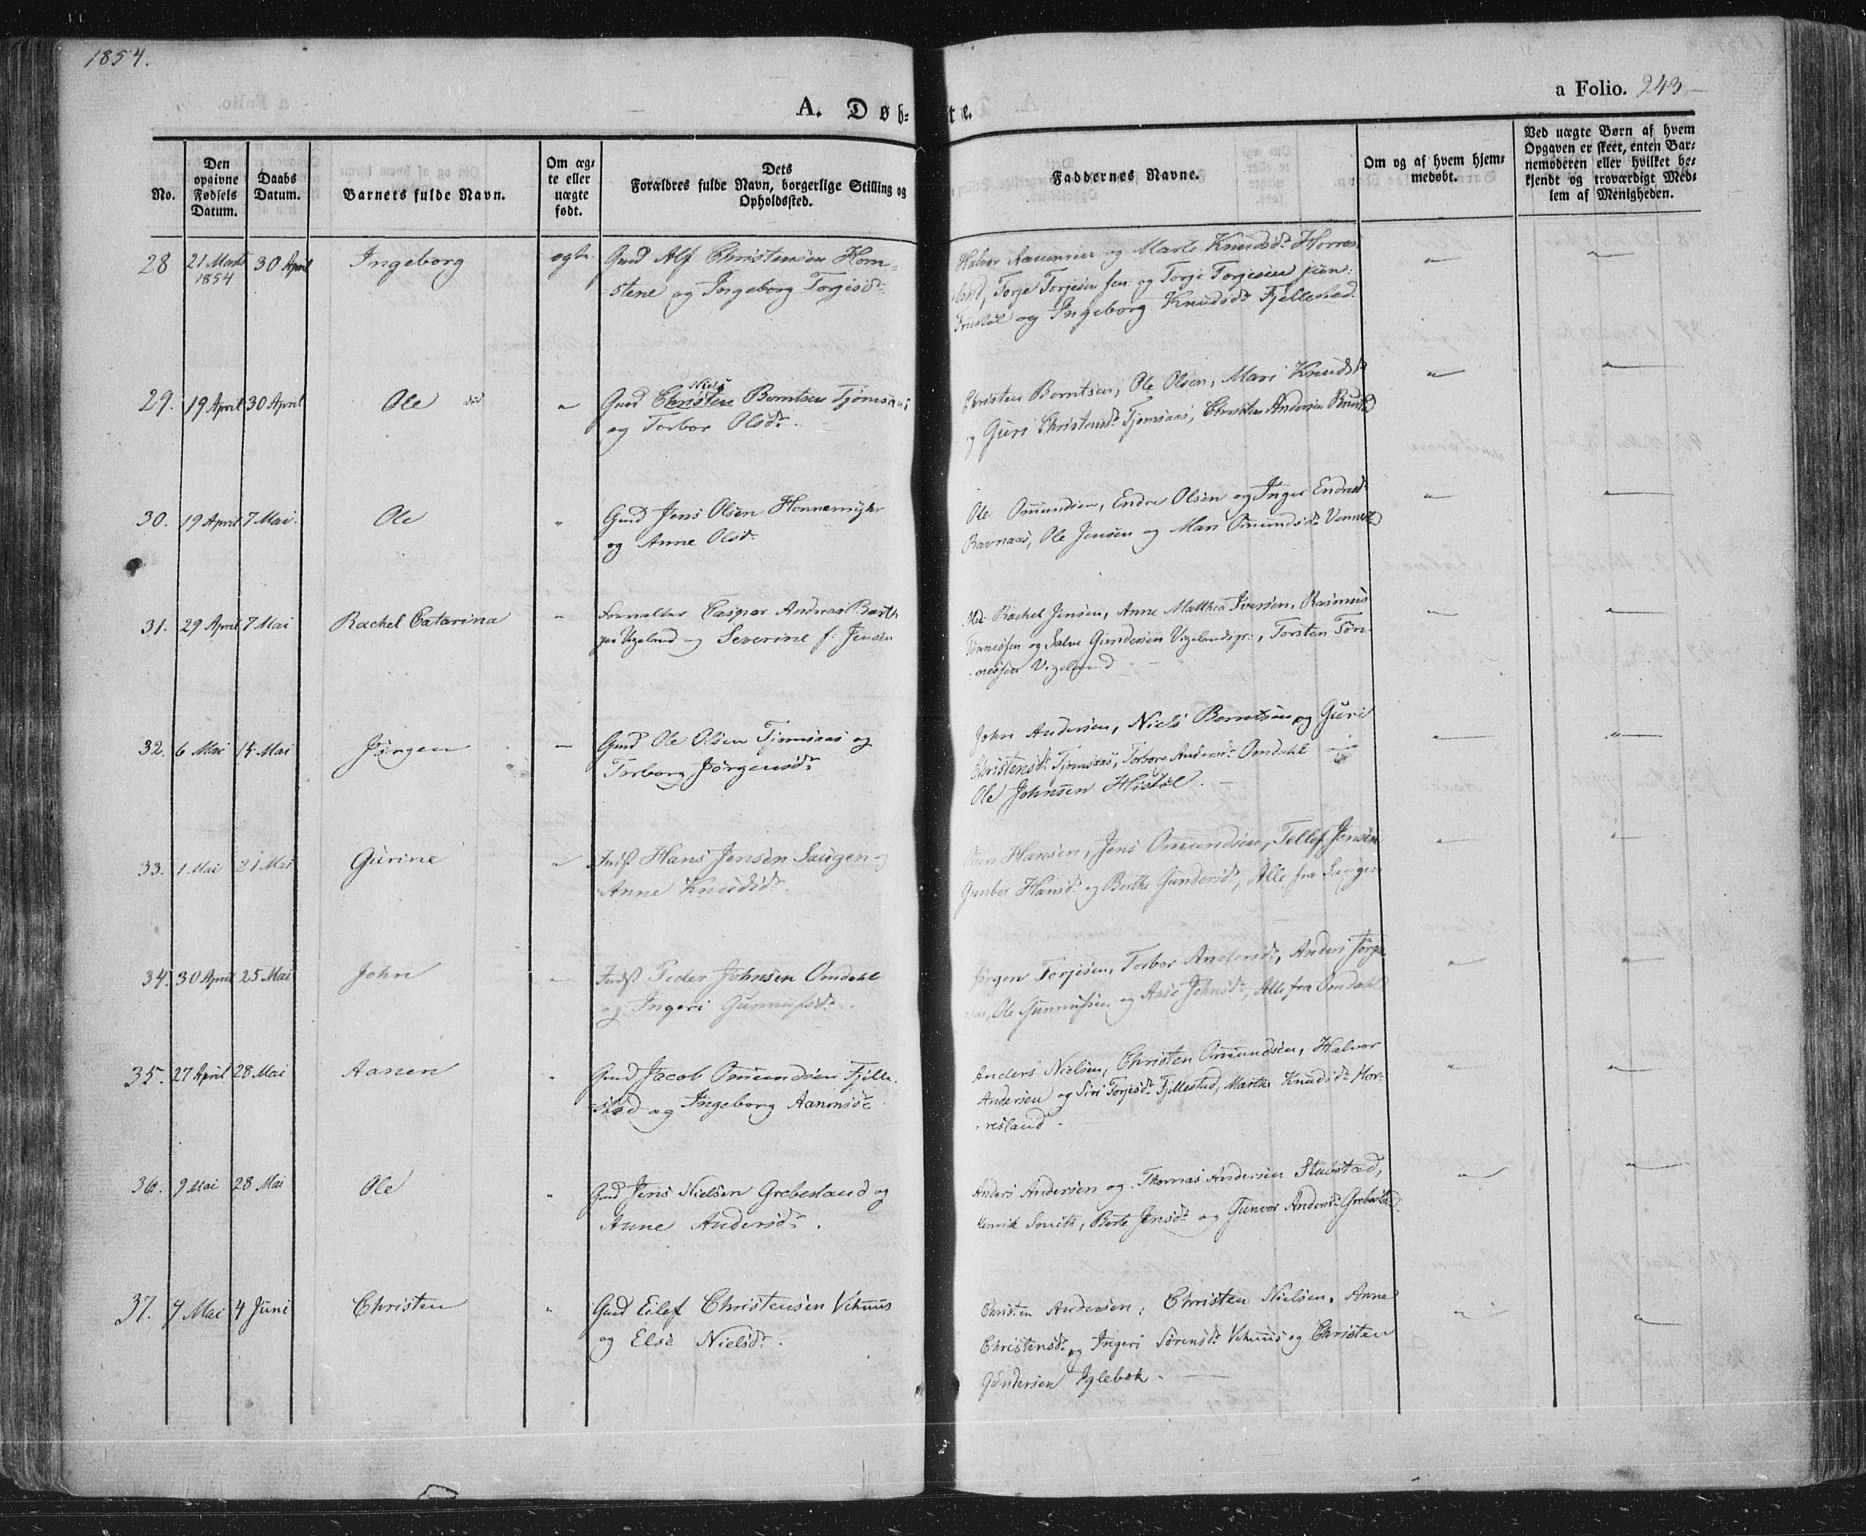 1854.
a Folio. 243
A. Døb-te.
No.
Den opgivne Fødsels Datum.
Daabs Datum.
Barnets fulde Navn.
Om ægte eller uægte født.
Dets Forældres fulde Navn, borgerlige Stilling og Opholdssted.
Faddernes Navne.
Om og af hvem hjemmedøbt.
Ved uægte Børn af hvem Opgaven er skeet, enten Barnemoderen eller hvilket bekjendt og troværdigt Medlem af Menigheden.
28 21 Marts 30 April Ingeborg ægte. Gmd Alf Christensen Hom-
1854
stene og Ingeborg Torjesdr
Halvor Aanensen og Marte Knudsdr Horres
land, Torje Torjesen sen. og Torje Torjesen jun:
og Ingeborg Knudsdr Fjellestad
29. 19 April 30 April Ole " Gmd Christen Berntsen Tjomsaas
Niels
og Torbor Olsdr.
Christen Berntsen, Ole Olsen, Mari Knudsdr
og Guri Christensdr Tjomsaas, Christen Andersen
30. 19 April 7 Mai. Ole " Gmd Jens Olsen Honnemyhr
og Anne Olsdr
Ole Omundsen, Endre Olsen og Inger Endresdr
Ravnaas, Ole Jensen og Mari Omundsdr Vennestad
31. 29 April 7 Mai Rachel Catarina " Forvalter Caspar Andreas Barth
paa Vigeland og Severine f: Jensen
Mad. Rachel Jensen, Anne Matthea Iversen, Rasmus
Tønnessen og Salve Gundersen Vigelandsgr., Torsten Tøn-
nessen Vigeland
32. 6 Mai 14 Mai Jørgen — Gmd Ole Olsen Tjomsaas og
Torborg Jørgensdr
John Andersen, Niels Berntsen og Guri
Christensdr Tjomsaas, Torbor Andersdr Omdahl
Ole Johnsen Histøl.
33. 1 Mai 21 Mai Gurine " Indst Hans Jensen Saugen og
Anne Knudsdr.
Hansen, Jens Omundsen, Tellef Jensen
Gunbor Hansdr og Berthe Gundersdr, Alle fra Saugen
34. 30 April 25 Mai John " Indst Peder Johnsen Omdahl
og Ingeri Gunnufsdr.
Jørgen Torjesen, Torbor Andersdr, Anders Jørgen
sen, Ole Gunnufsen og Aase Johnsdr, Alle fra Omdahl
35. 27 April 28 Mai Aanen " Gmd Jacob Omundsen Fjelle-
stad og Ingeborg Aanensdr
Anders Nielsen, Christen Omundsen, Halvor
Andersen og Siri Torjesdr Fjellestad, Marthe Knudsdr Hor-
resland.
36. 9 Mai 28 Mai Ole " Gmd Jens Nielsen Grebesland og
Anne Andersdr.
Anders Andersen og Thomas Andersen Stubstad,
Henrik Smith, Berte Jensdr og Gunvor Andersdr Grebesland.
37. 7 Mai 4 Juni Christen " Gmd Eilef Christensen Vehuus
og Else Nielsdr.
Christen Andersen, Christen Nielsen, Anne
Christensdr og Ingeri Sørensdr Vehuus og Christen
Gundersen Iglebæk.